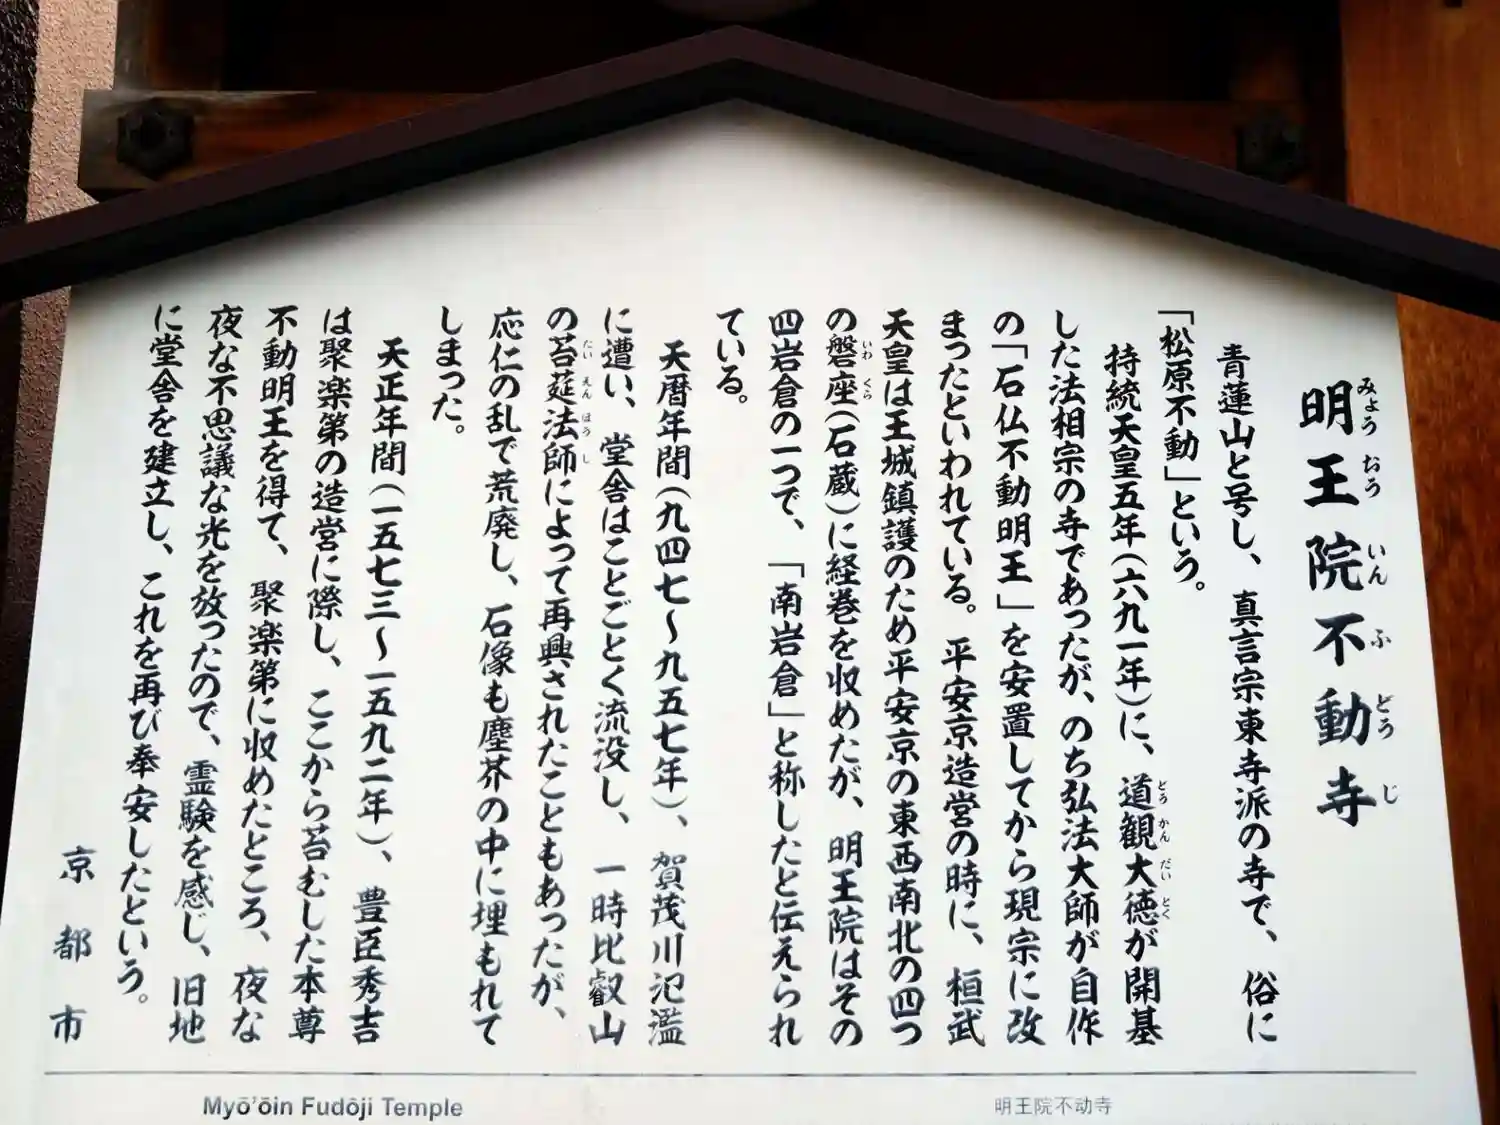 明王院不動寺
みょうおういんふどうじ
青蓮山と号し、真言宗東寺派の寺で、俗に
「松原不動」という。
持統天皇五年(六九一年)に、道観大徳が開基
どうかんだいとく
した法相宗の寺であったが、のち弘法大師が自作
の「石仏不動明王」を安置してから現宗に改
まったといわれている。平安京造営の時に、桓武
天皇は王城鎮護のため平安京の東西南北の四つ
の磐座(石蔵)に経巻を収めたが、明王院はその
いわくら
四岩倉の一つで、「南岩倉」と称したと伝えられ
ている。
天暦年間(九四七〜九五七年)、賀茂川氾濫
に遭い、堂舎はことごとく流没し、一時比叡山
の苔莚法師によって再興されたこともあったが、
たいえんほうし
応仁の乱で荒廃し、石像も塵芥の中に埋もれて
しまった。
天正年間(一五七三〜一五九二年)、豊臣秀吉
は聚楽第の造営に際し、ここから苔むした本尊
不動明王を得て、聚楽第に収めたところ、夜な
夜な不思議な光を放ったので、霊験を感じ、旧地
に堂舎を建立し、これを再び奉安したという。
京都市
Myō'ōin Fudōji Temple
明王院不动寺